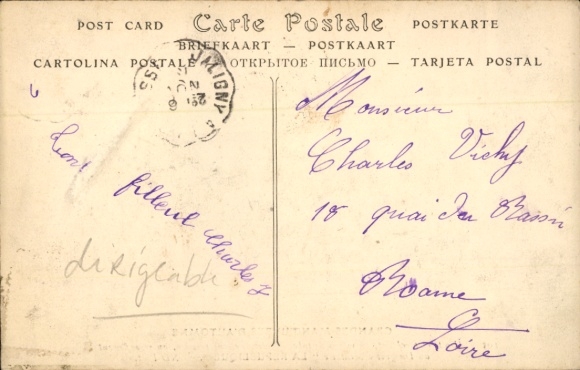 POST CARD Carte Postale POSTKARTE
BRIEFKAART — POSTKAART
CARTOLINA POSTALE — ОТКРЫТОЕ ПИСЬМО — TARJETA POSTAL
Monsieur
Charles Vichy
18 quai du Bassin
Roanne
Loire
filleul Charles
dirigeable